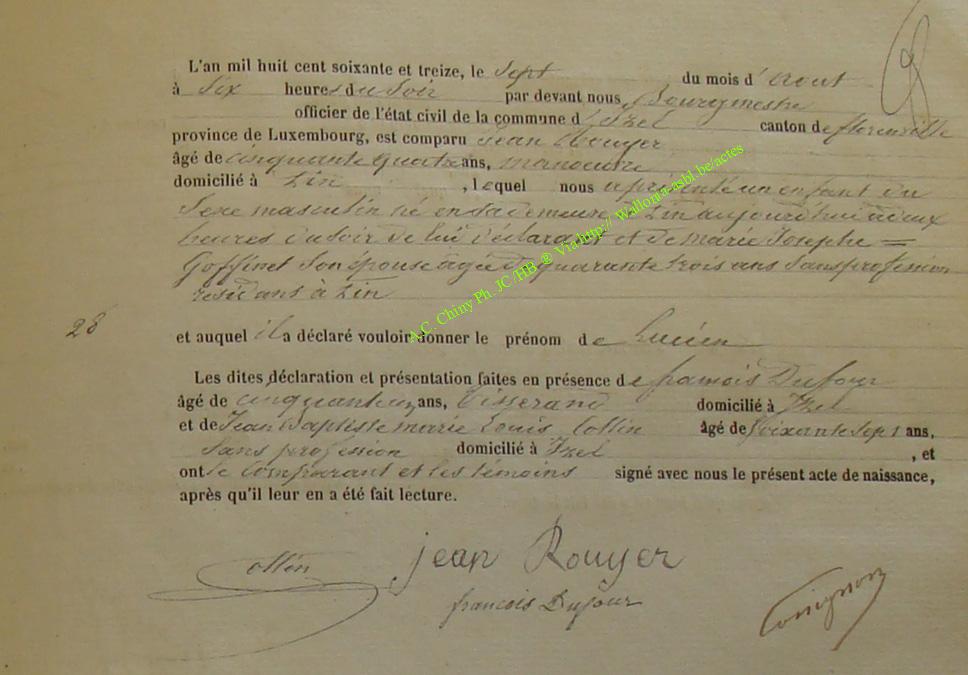 L'an mil huit cent soixante et treize, le sept du mois d'Aout
à Six heures du Soir par devant nous Bourgmestre
officier de l'état civil de la commune d'Izel canton de florenville
province de Luxembourg, est comparu Jean Rouyer
âgé de cinquante quatre ans, manoeuvre
domicilié à Pin, lequel nous a présenté un enfant du
Sexe masculin né en sa demeure à Pin aujourd'hui à deux
heures du Soir de lui déclarant et de Marie Josephe =
Goffinet Son épouse agée de quarante trois ans Sans profession
residans à Pin
28
et auquel il a déclaré vouloir donner le prénom de Lucien
Les dites déclaration et présentation faites en présence de françois Dufour
âgé de cinquante un ans, Tisserand domicilié à Izel
et de Jean Baptiste marie Louis Collin âgé de Soixante Sept ans,
Sans profession domicilié à Izel, et
ont le Comparant et les témoins signé avec nous le présent acte de naissance,
après qu'il leur en a été fait lecture.
Collin
Jean Rouyer
francois Dufour
A.C. Chiny Ph. JC/HB @ Via http:// Wallonia-asbl.be/actes